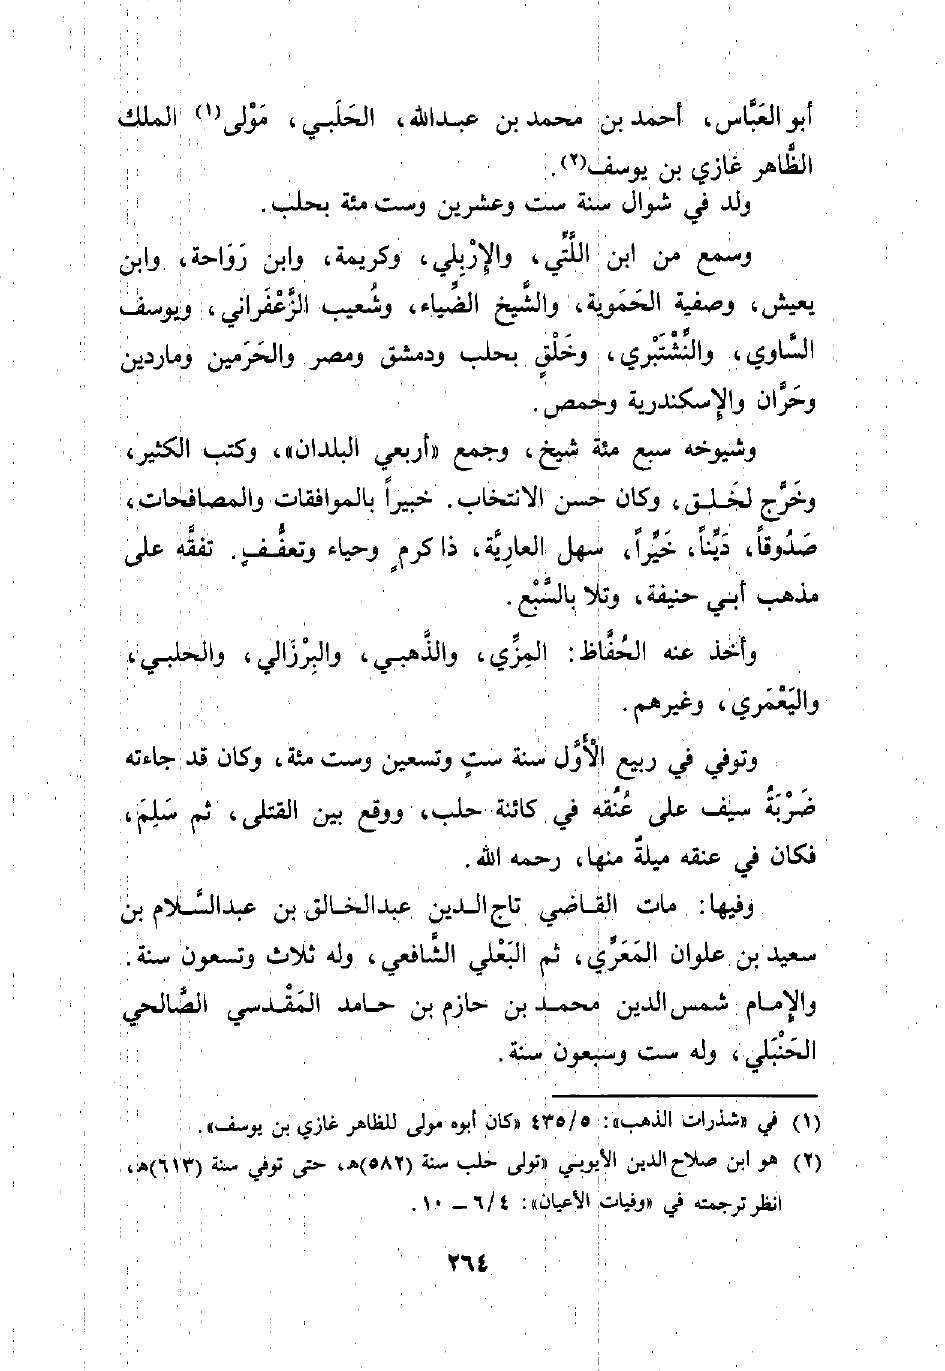 أبو العَبَّاس، أحمد بن محمد بن عبدالله، الحَلَبي، مَوْلى(١) الملك
الظَّاهر غازي بن يوسف(٢).
ولد في شوال سنة ست وعشرين وست مئة بحلب.
وسمع من ابن اللَّتِّي، والإِرْبِلي، وكريمة، وابن رَوَاحة، وابن
يعيش، وصفية الحَمَوية، والشَّيخ الضِّياء، وشُعيب الزَّعْفَراني، ويوسف
السَّاوي، والنَّشْتَبْري، وخَلْقٍ بحلب ودمشق ومصر والحَرَمين وماردين
وحَرَّان والإسكندرية وحمص.
وشيوخه سبع مئة شيخ، وجمع «أربعي البلدان»، وكتب الكثير،
وخَرَّج لخَلق، وكان حسن الانتخاب. خبيراً بالموافقات والمصافحات،
صَدُوقاً، دَيِّناً، خَيِّراً، سهل العارِيَّة، ذا كرمٍ وحياء وتعفُّفٍ. تفقَّه على
مذهب أبي حنيفة، وتلا بالسَّبْع.
وأخذ عنه الحُفَّاظ: المِزِّي، والذَّهبي، والبِرْزَالي، والحلبي،
واليَعْمَري، وغيرهم.
وتوفي في ربيع الْأَوَّل سنة ستٍ وتسعين وست مئة، وكان قد جاءته
ضَرْبَةُ سيف على عُنُقه في كائنة حلب، ووقع بين القتلى، ثم سَلِمَ،
فكان في عنقه ميلةٌ منها، رحمه الله.
وفيها: مات القاضي تاج الدين عبدالخالق بن عبدالسَّلام بن
سعيد بن علوان المَعَرِّي، ثم البَعْلي الشَّافعي، وله ثلاث وتسعون سنة.
والإِمام شمس الدين محمد بن حازم بن حامد المَقْدسي الصَّالحي
الحَنْبَلي، وله ست وسبعون سنة.
(١) في «شذرات الذهب»: ٤٣٥/٥ «كان أبوه مولى للظاهر غازي بن يوسف».
(٢) هو ابن صلاح الدين الأيوبي «تولى حلب سنة (٥٨٢)هـ، حتى توفي سنة (٦١٣)هـ،
انظر ترجمته في «وفيات الأعيان»: ٦/٤ ــ ١٠.
٢٦٤